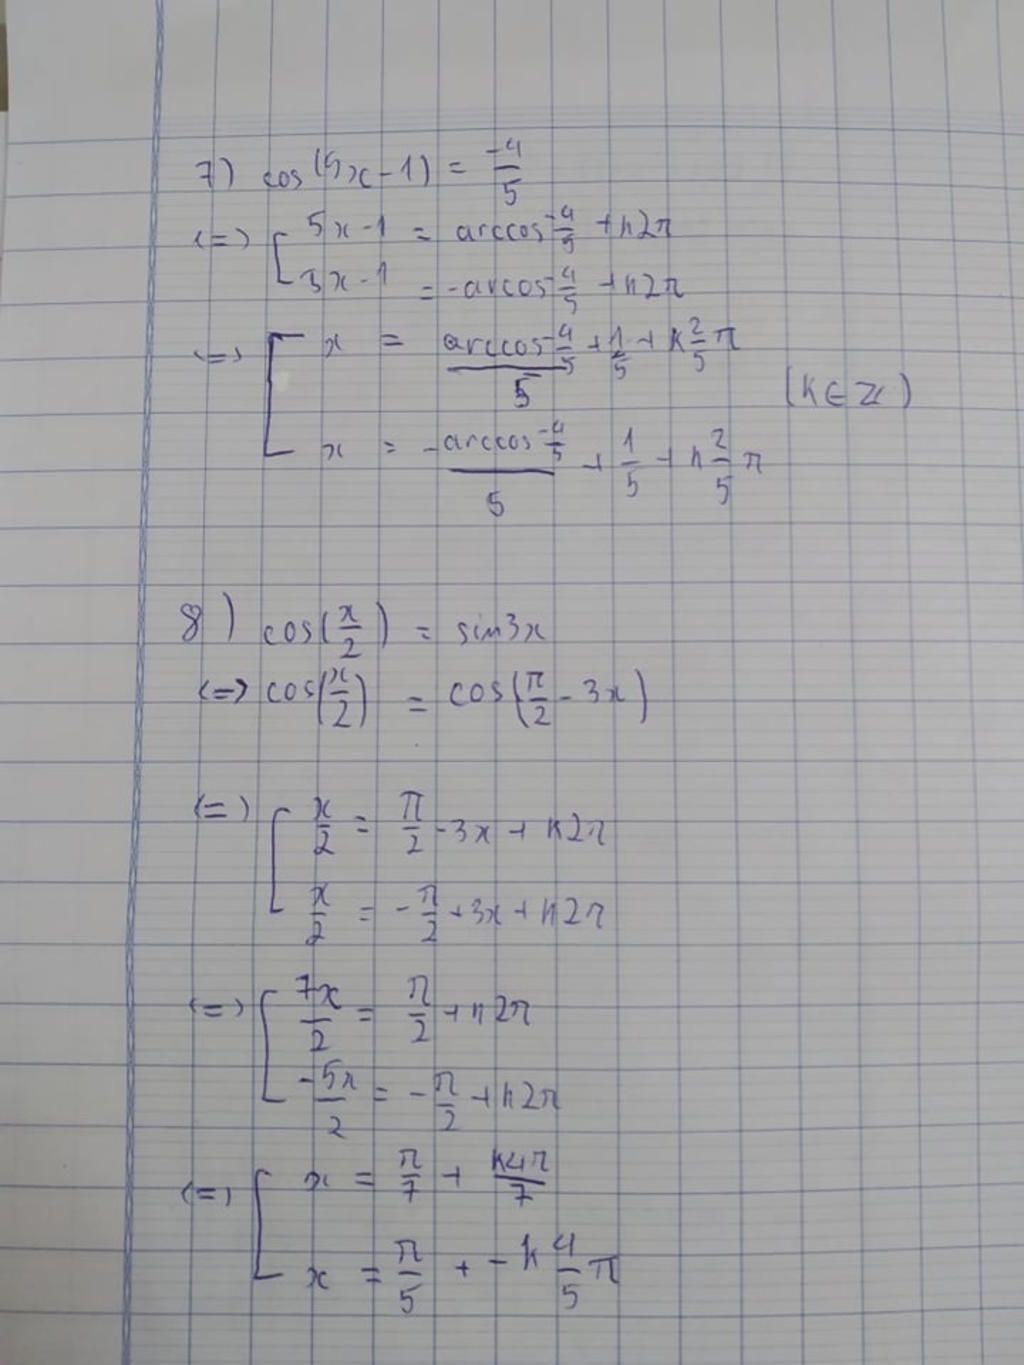 7) cos(5x-1) = -4/5
(=) [ 5x-1 = arccos -4/5 + k2π
3x-1 = -arcos -4/5 + k2π
(=) [ x = arccos -4/5 / 5 + 1/5 + k 2/5 π
(k ∈ Z)
x = - arccos -4/5 / 5 + 1/5 + k 2/5 π
8) cos(x/2) = sin3x
(=) cos(x/2) = cos(π/2 - 3x)
(=) [ x/2 = π/2 - 3x + k2π
x/2 = -π/2 + 3x + k2π
(=) [ 7x/2 = π/2 + k2π
-5x/2 = -π/2 + k2π
(=) [ x = π/7 + k4π/7
x = π/5 + - k 4/5 π